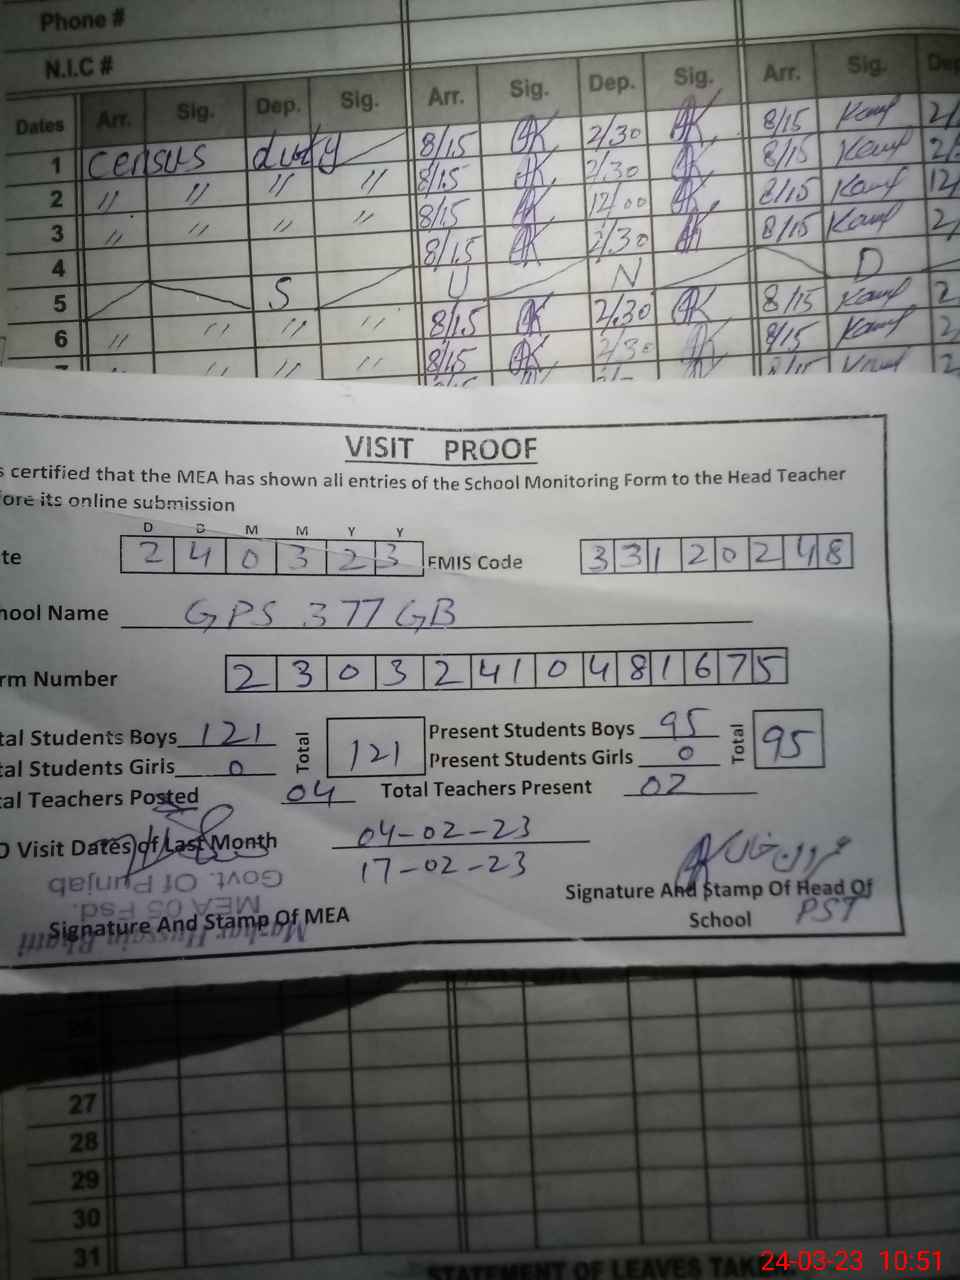 Phone #
N.I.C #
Dates Arr. Sig. Dep. Sig. Arr. Sig. Dep. Sig. Arr. Sig. Dep
1 census duty 8/15 AK 2/30 AK 8/15 2/
2 〃 〃 〃 〃 8/15 AK 2/30 AK 8/15 2/
3 〃 〃 〃 〃 8/15 AK 12/00 AK 8/15 12/
4 8/15 AK 2/30 AK 8/15 2/
5 S U N D
6 〃 〃 〃 〃 8/15 AK 2/30 AK 8/15 2
〃 〃 〃 〃 8/15 AK 2/30 AK 8/15 2
VISIT PROOF
s certified that the MEA has shown all entries of the School Monitoring Form to the Head Teacher
ore its online submission
D D M M Y Y
te 2 4 0 3 2 3 EMIS Code 3 3 1 2 0 2 4 8
hool Name GPS 377 GB
rm Number 2 3 0 3 2 4 1 0 4 8 1 6 7 5
tal Students Boys 121 Total 121 Present Students Boys 95 Total 95
tal Students Girls 0 Present Students Girls 0
tal Teachers Posted 04 Total Teachers Present 02
O Visit Dates of Last Month 04-02-23
17-02-23
Govt. Of Punjab
MEA 05 Fsd.
Mazhar Hussain Bhatti
Signature And Stamp Of MEA
Signature And Stamp Of Head Of
School PST
27
28
29
30
31
STATEMENT OF LEAVES TAKE
24-03-23 10:51